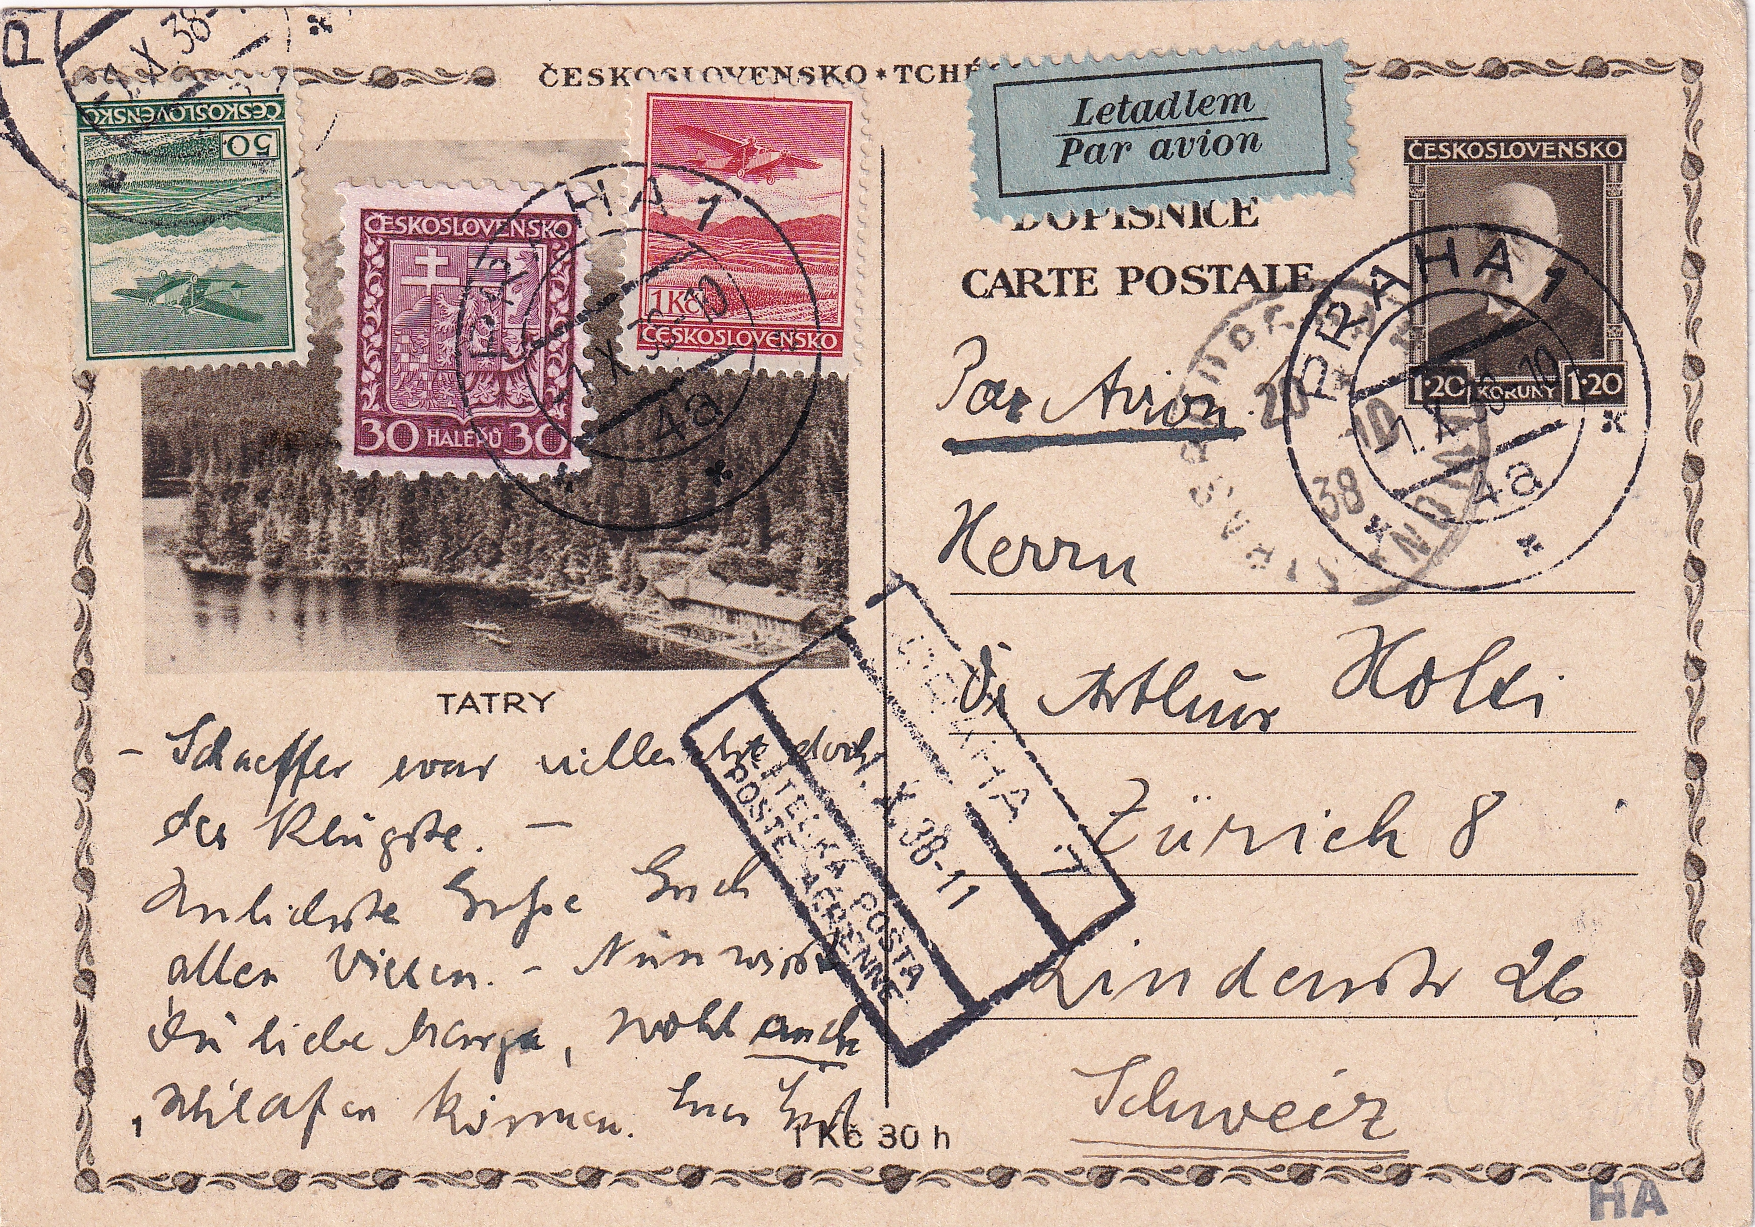 ČESKOSLOVENSKO * TCHÉ
Letadlem
Par avion
DOPISNICE
CARTE POSTALE
ČESKOSLOVENSKO
1·20 KORUNY 1·20
ČESKOSLOVENSKO
50
ČESKOSLOVENSKO
30 HALÉŘŮ 30
1 Kč
ČESKOSLOVENSKO
PRAHA 1
1.X 38-10
4a
PRAHA 1
1.X 38-10
4a
X 38-
20
10
38
TATRY
Par Avion
Herrn
Dr Arthur
Zürich 8
Lindenstr 26
Schweiz
PRAHA 7
1.X.38-11
LETECKÁ POŠTA
POSTE AÉRIENNE
– Schaeffer war vielleicht doch
der Klügste. –
Grüße Euch
allen Vieren. – Nun wirst
Du liebe Marga, wohl auch
schlafen können. Euer
1 Kč 30 h
HA